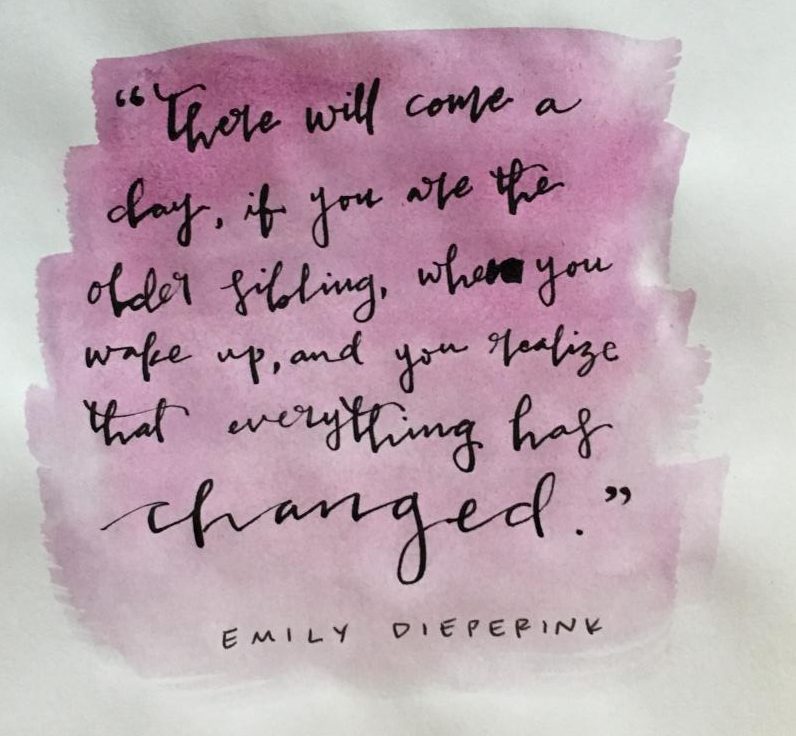 “There will come a
day, if you are the
older sibling, when you
wake up, and you realize
that everything has
changed.”
EMILY DIEPERINK